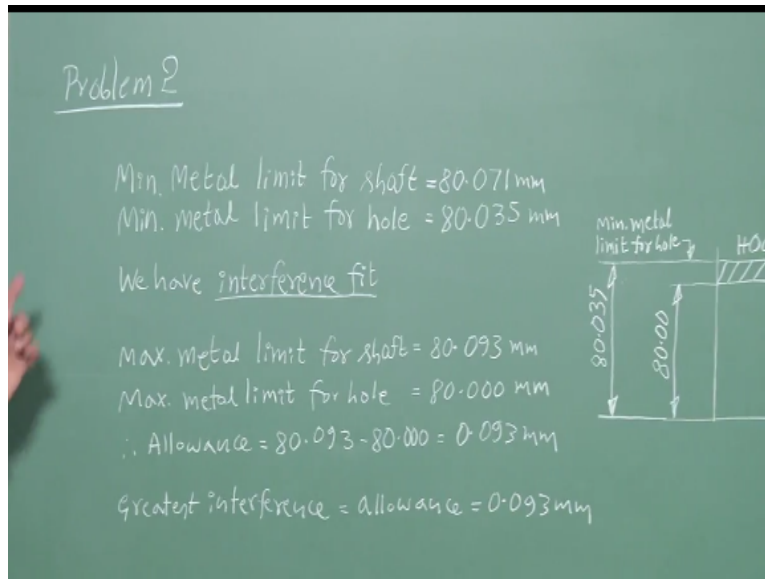 Problem 2
Min. Metal limit for shaft = 80.071 mm
Min. metal limit for hole = 80.035 mm
We have interference fit
Max. metal limit for shaft = 80.093 mm
Max. metal limit for hole = 80.000 mm
∴ Allowance = 80.093 - 80.000 = 0.093 mm
Greatest interference = allowance = 0.093 mm
Min. metal
limit for hole
80.035
80.00